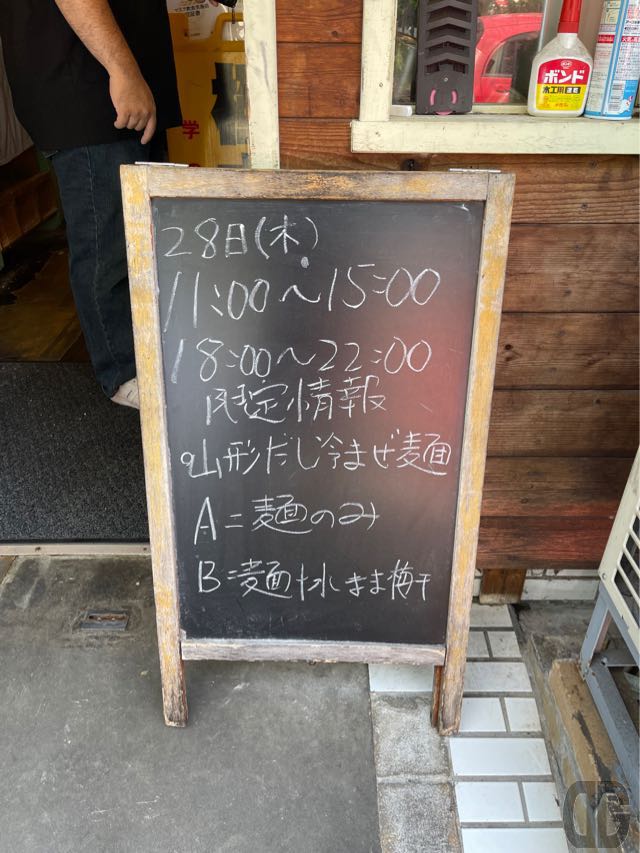 28日(木)
11:00〜15:00
18:00〜22:00
限定情報
山形だし冷まぜ麺
A=麺のみ
B=麺+水しまま梅干
ボンド
木工用 速乾
学